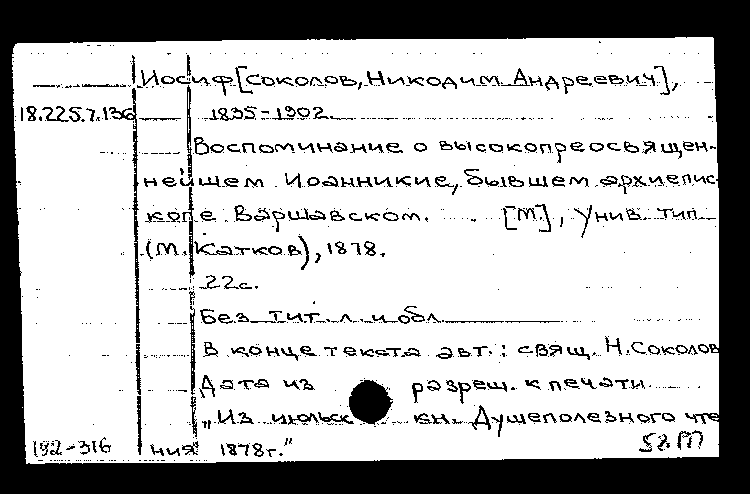 Иосиф [Соколов, Никодим Андреевич],
18.225.7.136 1835-1902.
Воспоминание о высокопреосвящен-
нейшем Иоанникие, бывшем архиепис-
копе Варшавском. [М.], Унив. тип.
(М. Катков), 1878.
22с.
Без тит. л. и обл.
В конце текста авт.: свящ. Н. Соколов
Дата из разреш. к печати
„Из июльск кн. Душеполезного чте
192-316 ния 1878г."